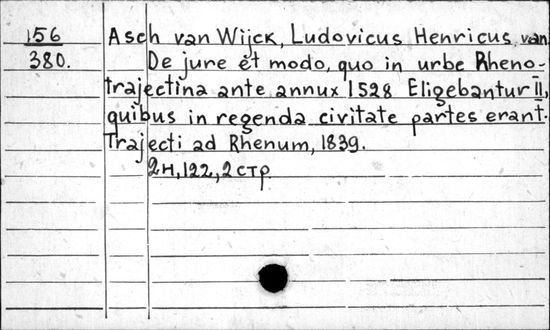 156
380.
Asch van Wijck, Ludovicus Henricus van
De jure et modo, quo in urbe Rheno-
trajectina ante annux 1528 Eligebantur II,
quibus in regenda civitate partes erant.
Trajecti ad Rhenum, 1839.
2н, 122, 2 стр